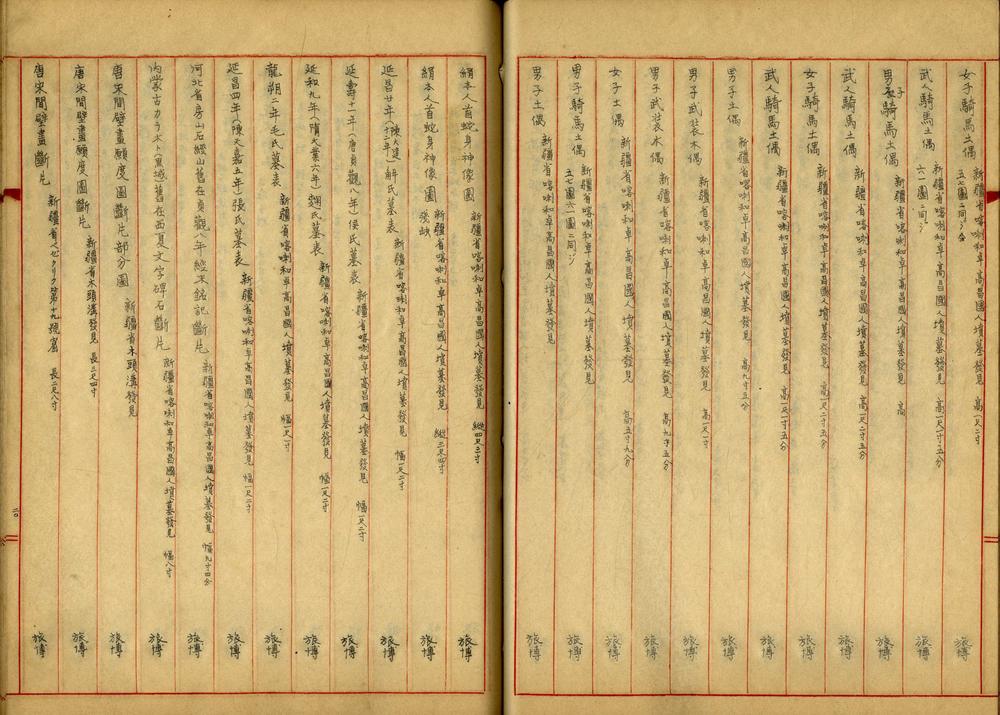 女子騎馬土偶 新疆省喀喇和卓高昌國人墳墓發見 高一尺二寸 旅博
五七圖ニ同シ
武人騎馬土偶 新疆省喀喇和卓高昌國人墳墓發見 高一尺二寸五分 旅博
六一圖ニ同シ
男子騎馬土偶 新疆省喀喇和卓高昌國人墳墓發見 高 旅博
武人騎馬土偶 新疆省喀喇和卓高昌國人墳墓發見 高一尺二寸五分 旅博
女子騎馬土偶 新疆省喀喇和卓高昌國人墳墓發見 高一尺二寸五分 旅博
武人騎馬土偶 新疆省喀喇和卓高昌國人墳墓發見 高一尺一寸五分 旅博
男子土偶 新疆省喀喇和卓高昌國人墳墓發見 高九寸五分 旅博
男子武裝木偶 新疆省喀喇和卓高昌國人墳墓發見 高一尺一寸 旅博
男子武裝木偶 新疆省喀喇和卓高昌國人墳墓發見 高九寸五分 旅博
女子土偶 新疆省喀喇和卓高昌國人墳墓發見 高五寸九分 旅博
五七圖六一圖ニ同シ
男子騎馬土偶 新疆省喀喇和卓高昌國人墳墓發見 旅博
男子土偶 新疆省喀喇和卓高昌國人墳墓發見 旅博
絹本人首蛇身神像圖 新疆省喀喇和卓高昌國人墳墓發見 縱四尺三寸 旅博
絹本人首蛇身神像圖 殘缺 新疆省喀喇和卓高昌國人墳墓發見 縱三尺四寸 旅博
延昌廿年(陳大建十二年)解氏墓表 新疆省喀喇和卓高昌國人墳墓發見 幅一尺二寸 旅博
延壽十一年(唐貞觀八年)侯氏墓表 新疆省喀喇和卓高昌國人墳墓發見 幅一尺二寸 旅博
延和九年(隋大業六年)趙氏墓表 新疆省喀喇和卓高昌國人墳墓發見 幅一尺二寸 旅博
龍朔二年毛氏墓表 新疆省喀喇和卓高昌國人墳墓發見 幅一尺一寸 旅博
延昌四年(陳天嘉五年)張氏墓表 新疆省喀喇和卓高昌國人墳墓發見 幅一尺二寸 旅博
河北省房山石經山舊在貞觀八年經末銘記斷片 新疆省喀喇和卓高昌國人墳墓發見 幅九寸四分 旅博
內蒙古カラホト(黑城)舊在西夏文字碑石斷片 新疆省喀喇和卓高昌國人墳墓發見 幅八寸 旅博
唐宋間壁畫願度圖斷片部分圖 新疆省木頭溝發見 旅博
唐宋間壁畫願度圖斷片 新疆省木頭溝發見 長三尺四寸 旅博
唐宋間壁畫斷片 新疆省ベゼクリク第十九號窟 長二尺八寸 旅博
二〇